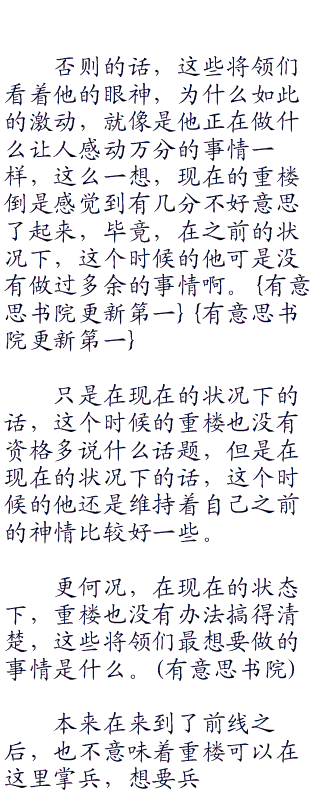 否则的话，这些将领们
看着他的眼神，为什么如此
的激动，就像是他正在做什
么让人感动万分的事情一
样，这么一想，现在的重楼
倒是感觉到有几分不好意思
了起来，毕竟，在之前的状
况下，这个时候的他可是没
有做过多余的事情啊。{有意
思书院更新第一}{有意思书
院更新第一}
只是在现在的状况下的
话，这个时候的重楼也没有
资格多说什么话题，但是在
现在的状况下的话，这个时
候的他还是维持着自己之前
的神情比较好一些。
更何况，在现在的状态
下，重楼也没有办法搞得清
楚，这些将领们最想要做的
事情是什么。(有意思书院)
本来在来到了前线之
后，也不意味着重楼可以在
这里掌兵，想要兵